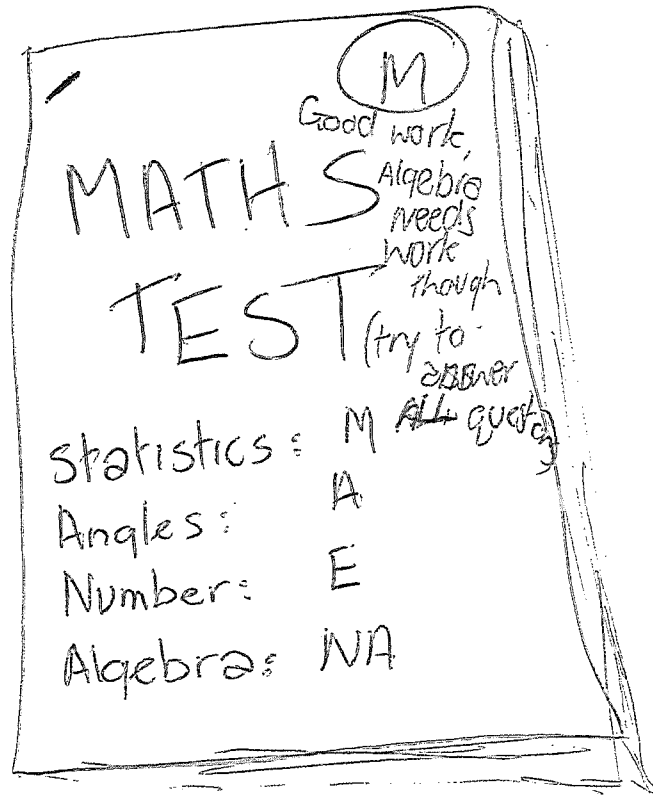 M
Good work,
Algebra
needs
work
though
(try to
answer
ALL questions)
MATHS
TEST
Statistics: M
Angles: A
Number: E
Algebra: NA